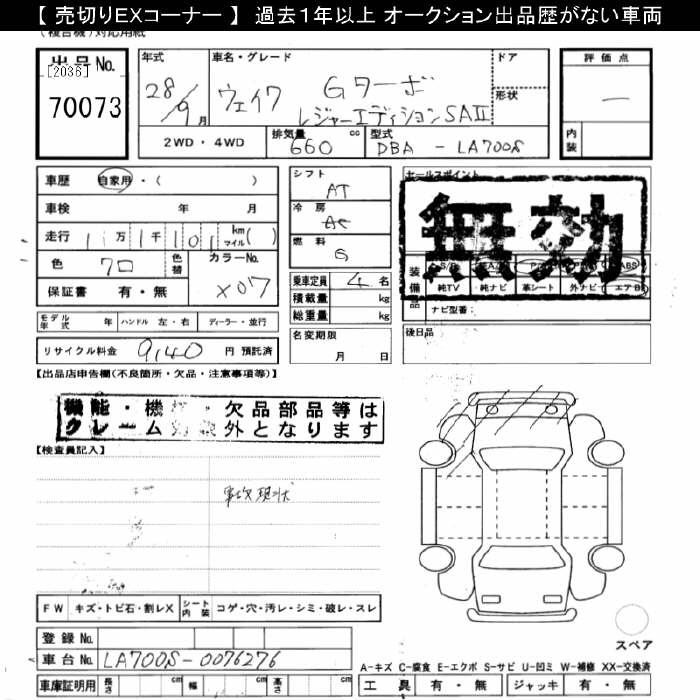 【 売切りEXコーナー 】 過去1年以上 オークション出品歴がない車両
出品 No.
[2036]
70073
年式
28/9 月
車名・グレード
ウェイク
Gターボ
レジャーエディションSAⅡ
ドア
形状
2WD・4WD
排気量
660 cc
型式
DBA - LA700S
評価点
内装
車歴 自家用・( )
車検 年 月
走行 11万1千101 km マイル( )
色 クロ
色替
カラーNo.
X07
保証書 有・無
シフト
AT
冷房
AC
燃料
G
乗車定員 4 名
積載量 kg
総重量 kg
名変期限
月 日
セールスポイント
無効
装備品
ABS
純TV 純ナビ 革シート 外ナビ エアB
ナビ型番:
後日品
モデル年式 年 ハンドル 左・右 ディーラー・並行
リサイクル料金 9,140 円 預託済
【出品店申告欄(不良箇所・欠品・注意事項等)】
機能・機 ・欠品部品等は
クレーム対象外となります
【検査員記入】
事故現状
FW キズ・トビ石・割レX シート内装 コゲ・穴・汚レ・シミ・破レ・スレ
登録 No.
車台 No. LA700S-0076276
車庫証明用 長さ cm 幅 cm 高さ cm
スペア
A-キズ C-腐食 E-エクボ S-サビ U-凹ミ W-補修 XX-交換済
工具 有・無 ジャッキ 有・無